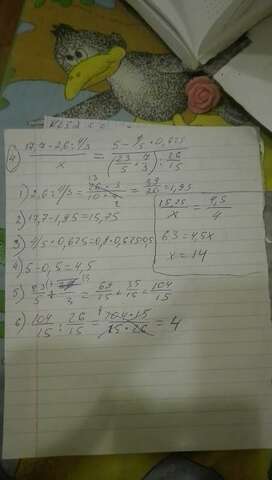 4) (17,7 - 2,6 : 4/3) / x = (5 - 4/5 · 0,625) / ((23/5 + 7/3) : 26/15)
1) 2,6 : 4/3 = 26 · 3 / 10 · 4 = 39/20 = 1,95
2) 17,7 - 1,95 = 15,75
3) 4/5 · 0,625 = 0,8 · 0,625 = 0,5
4) 5 - 0,5 = 4,5
5) 23/5 + 7/3 = 69/15 + 35/15 = 104/15
6) 104/15 : 26/15 = 104 · 15 / 15 · 26 = 4
15,75/x = 4,5/4
63 = 4,5x
x = 14